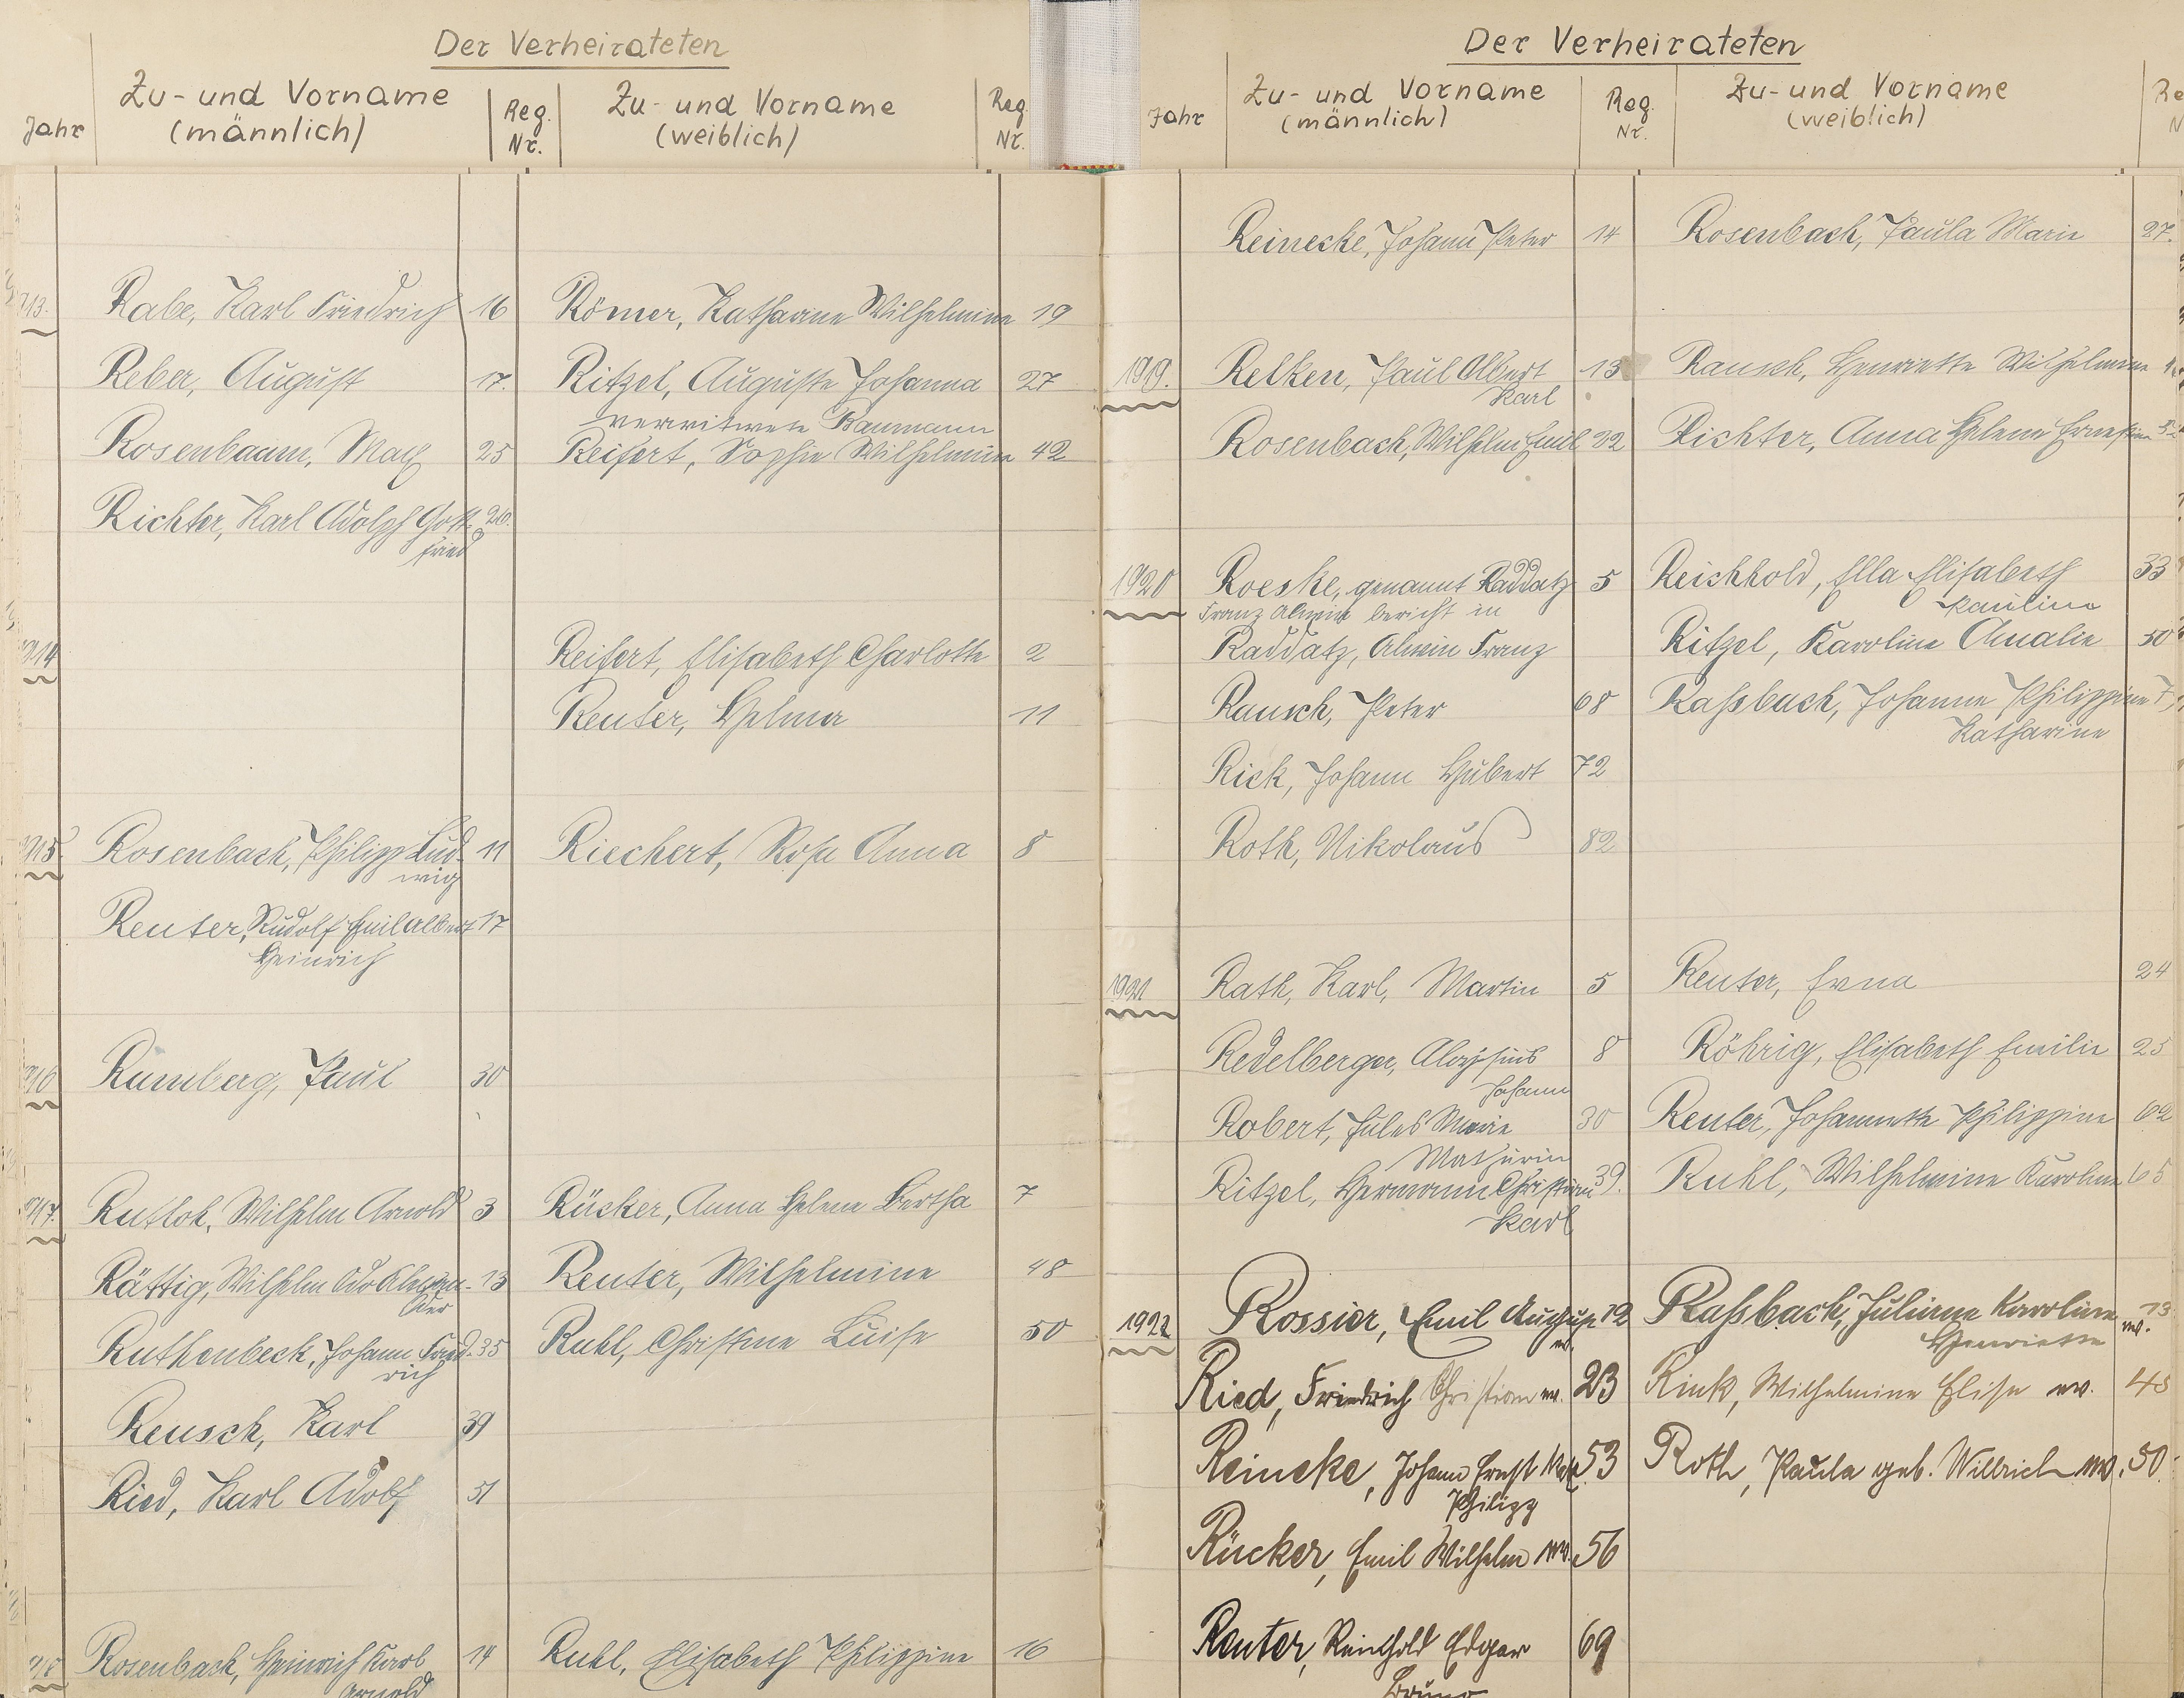 Der Verheirateten
Jahr
Zu- und Vorname
(männlich)
Reg.
Nr.
Zu- und Vorname
(weiblich)
Reg.
Nr.
1913. Rabe, Karl Friedrich 16 Römer, Katharine Wilhelmine 19
Reber, August 17. Ritzel, Auguste Johanna 27
verwitwete Baumann
Rosenbaum, Max 25 Reifert, Sophie Wilhelmine 42
Richter, Karl Adolph Gott-
fried
1914 Reifert, Elisabeth Charlotte 2
Reuter, Helma 11
1915 Rosenbach, Philipp Lud- 11 Riechert, Rosa Anna 8
wig
Reuter, Rudolf Emil Albert 17
Heinrich
1916 Rumberg, Paul 30
1917. Ruttok, Wilhelm Arnold 3 Rücker, Anna Helene Bertha 7
Rättig, Wilhelm Ado Alexan- 13 Reuter, Wilhelmine 48
der
Ruthenbeck, Johann Fried- 35 Ruhl, Christine Luise 50
rich
Reusch, Karl 39
Ried, Karl Adolf 51
1918 Rosenbach, Heinrich Karl 14 Ruhl, Elisabeth Philippine 16
Arnold
Der Verheirateten
Jahr
Zu- und Vorname
(männlich)
Reg.
Nr.
Zu- und Vorname
(weiblich)
Re
N
Reinecke, Johann Peter 14 Rosenbach, Paula Marie 27.
1919. Relken, Paul Albert 13 Rausch, Henriette Wilhelmine
Karl
Rosenbach, Wilhelm Emil 22 Richter, Anna Helene Ernestine
1920 Roeske, genannt Raddatz 5 Reichhold, Ella Elisabeth 33
Franz Alwin bericht in Pauline
Raddatz, Alwin Franz Ritzel, Karoline Amalie 50
Rausch, Peter 68 Raßbach, Johanne Philippine
Katharine
Rick, Johann Hubert 72
Roth, Nikolaus 82
1921 Rath, Karl, Martin 5 Reuter, Erna 24
Redelberger, Aloysius 8 Röhrig, Elisabeth Emilie 25
Johann
Robert, Jules Marie 30 Reuter, Johannette Philippine 62
Mathurin
Ritzel, Hermann Christian 39. Ruhl, Wilhelmine Karoline 65
Karl
1922 Rossier, Emil August 12 Raßbach, Juliane Karoline 13
w. Henriette w.
Ried, Friedrich Christian w. 23 Rink, Wilhelmine Elise w. 45
Reineke, Johann Ernst 53 Roth, Paula geb. Willrich w. 50
Philipp
Rücker, Emil Wilhelm w. 56
Reuter, Reinhold Edgar 69
Bruno